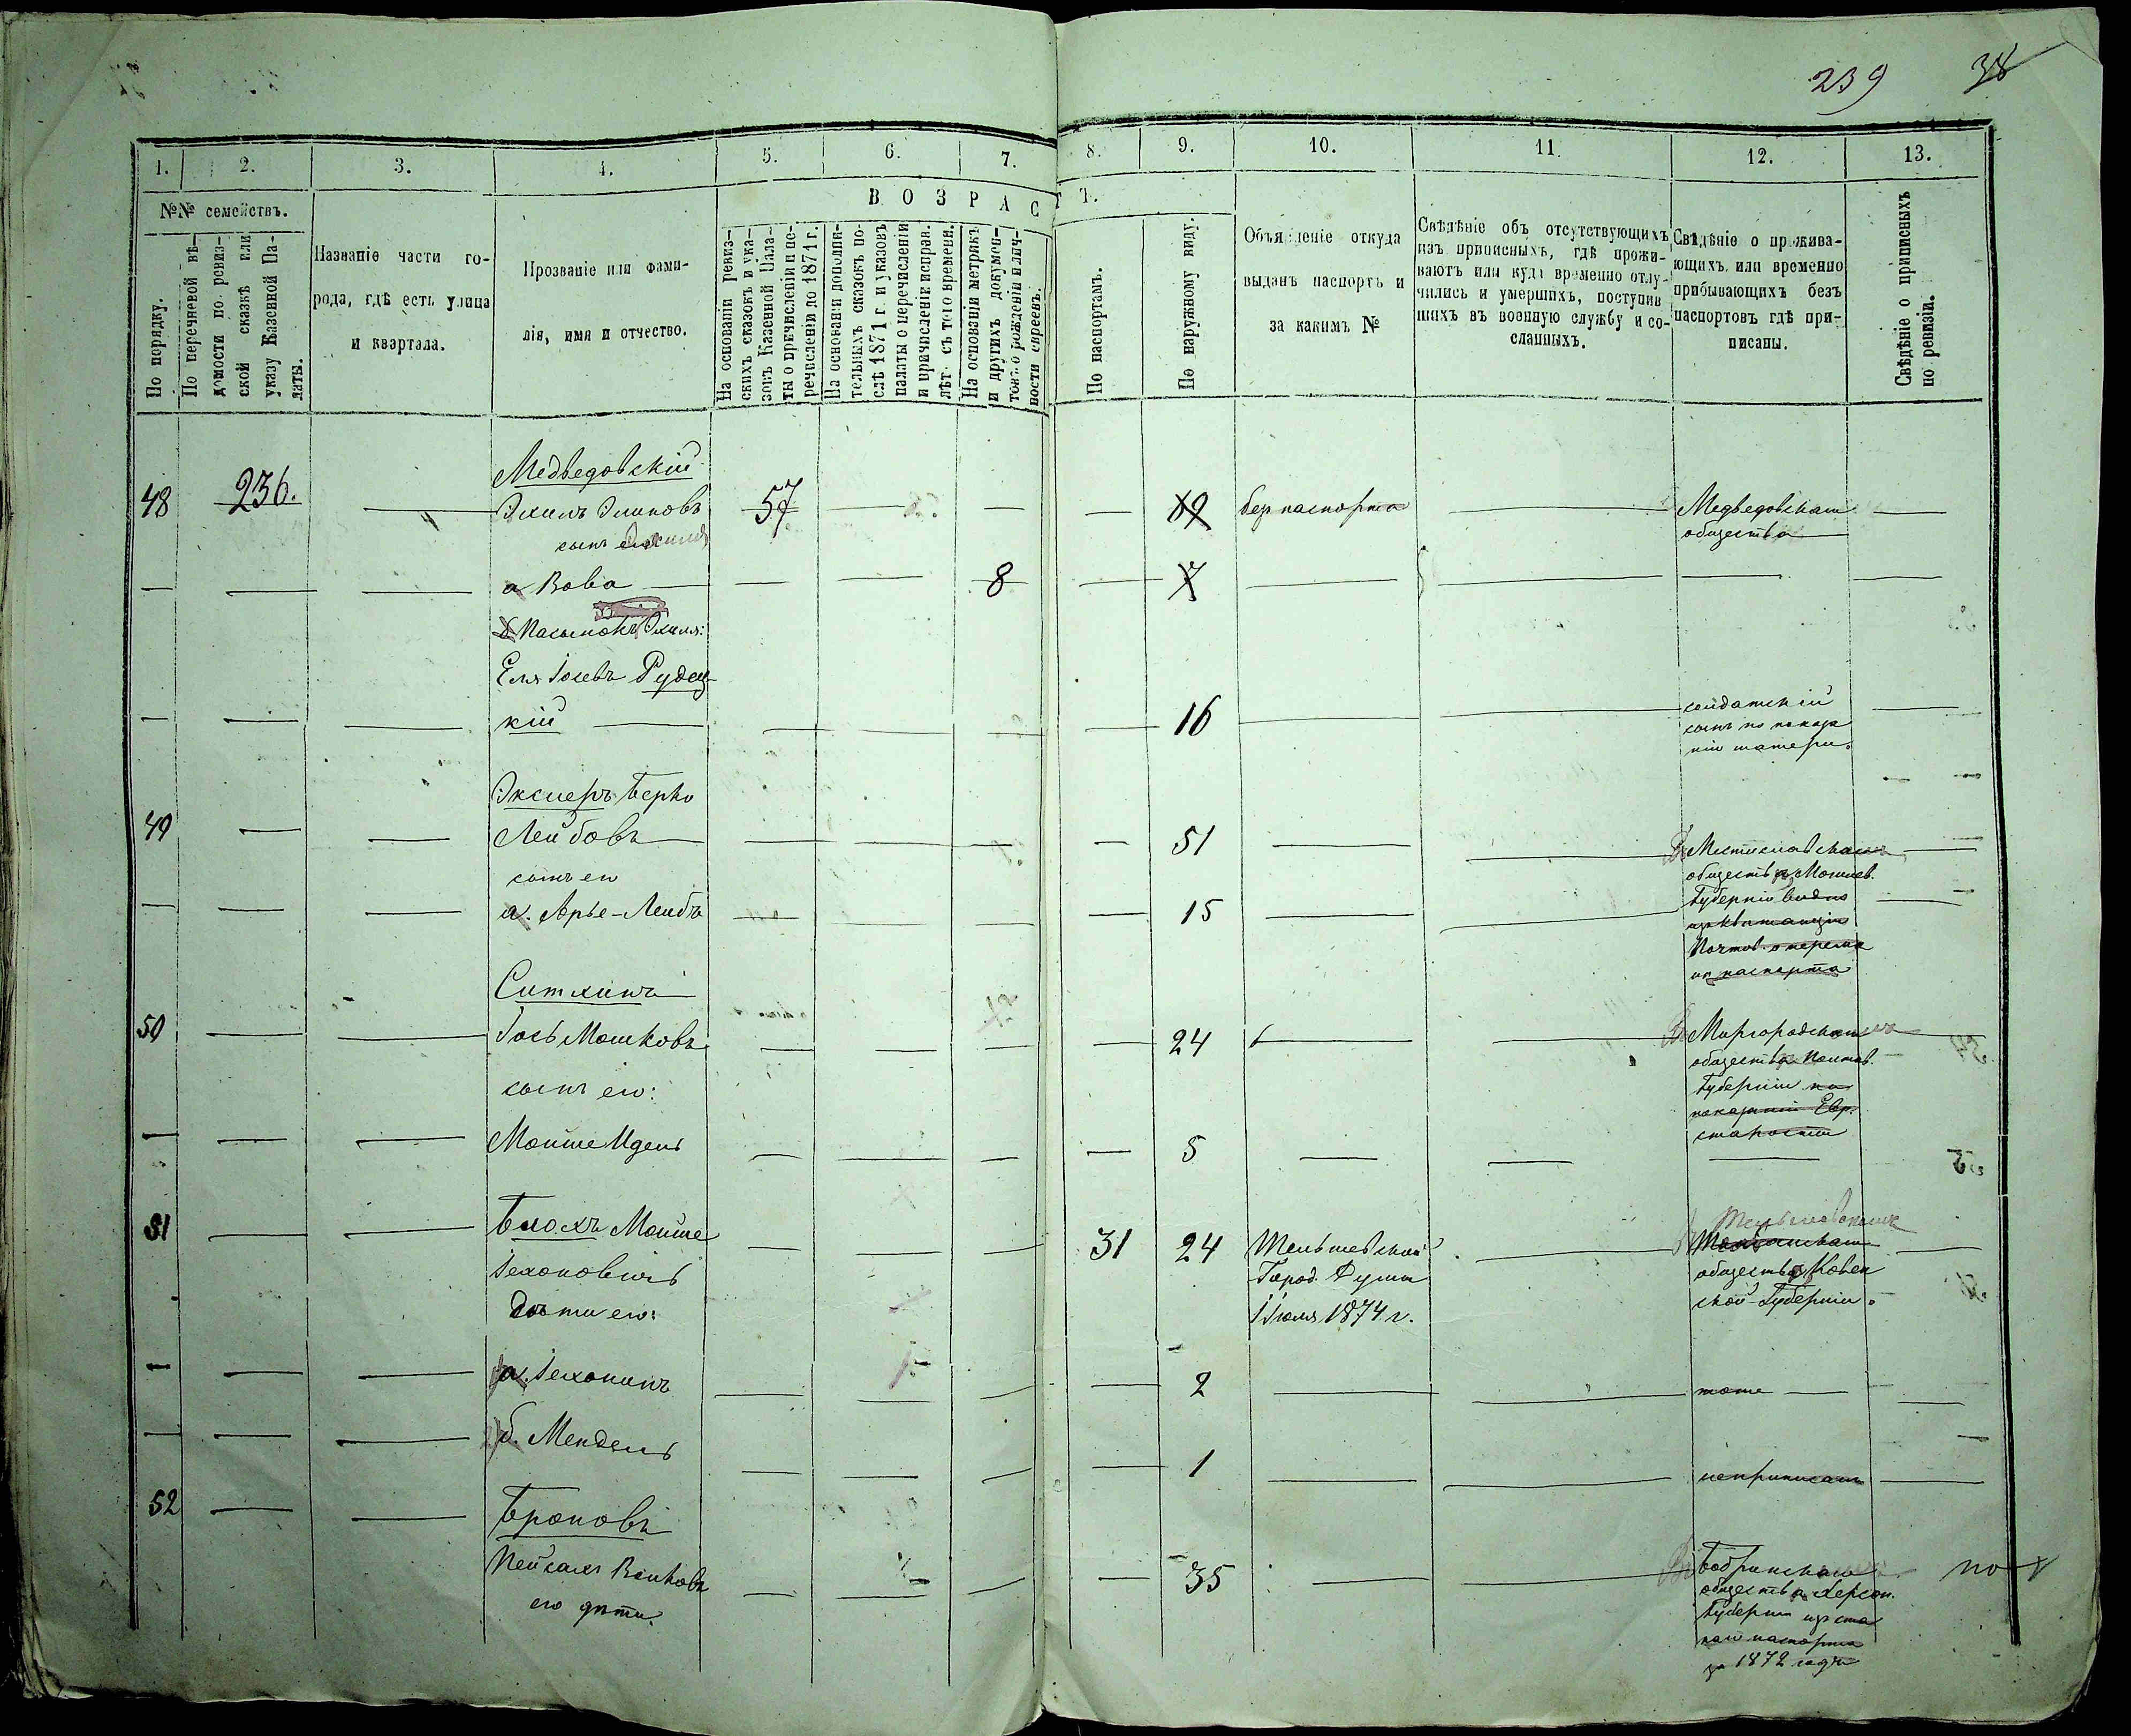 239 38
1. 2. 3. 4. 5. 6. 7. 8. 9. 10. 11. 12. 13.
№№ семействъ.
По порядку.
По перечневой вѣ-
домости по ревиз-
ской сказкѣ или
указу Казенной Па-
латы.
Названіе части го-
рода, гдѣ есть улица
и квартала.
Прозваніе или фами-
лія, имя и отчество.
ВОЗРАСТЪ.
На основаніи ревиз-
скихъ сказокъ и ука-
зовъ Казенной Пала-
ты о причисленіи и пе-
речисленіи до 1871 г.
На основаніи дополни-
тельныхъ сказокъ по-
слѣ 1871 г. и указовъ
палаты о перечисленіи
и причисленіе исправ.
лѣт. съ того времени.
На основаніи метрикъ
и другихъ докумен-
товъ о рожденіи и лич-
ности евреевъ.
По паспортамъ.
По наружному виду.
Объявленіе откуда
выданъ паспортъ и
за какимъ №
Свѣдѣніе объ отсутствующихъ
изъ приписныхъ, гдѣ прожи-
ваютъ или куда временно отлу-
чились и умершихъ, поступив
шихъ въ военную службу и со-
сланныхъ.
Свѣдѣніе о прожива-
ющихъ или временно
прибывающихъ безъ
паспортовъ гдѣ при-
писаны.
Свѣдѣніе о приписныхъ
по ревизіи.
Медведовскій
48 236. Эхиль 57 69 без паспорта Медведовскаго
сынъ его общества
а Вова 8 7
Пасынокъ Эхиля:
Еля Іосевъ Рудец-
кій 16 солдатскій
сынъ по показа
нію матери.
Экслеръ Берко
49 Лейбовъ 51 Въ Мстиславскомъ
сынъ его обществѣ Могилев.
а. Арье-Лейбъ 15 Губерніи видно
изъ квитанціи
Почтов. о пересыл
паспорта
Ситхинъ
50 Іось Мошковъ 24 Въ Миргородскомъ
обществѣ Полтав.
сынъ его: Губерніи по
показанію Евр.
старосты
Мойше Идель 5
51 Блохъ Мойше 31 24 Тельшевской
Іехоновичъ Город. Думы общества Ковен
дѣти его: 1 Іюля 1874 г. ской Губерніи
а. Іехониль 2 тоже
б. Мендель 1 неприписан
52 Броновъ
Пейсахъ Волковъ 35 Въ Бобринскомъ
его дѣти. обществѣ Херсон.
Губерніи изъ ста
раго паспорта
за 1872 годъ